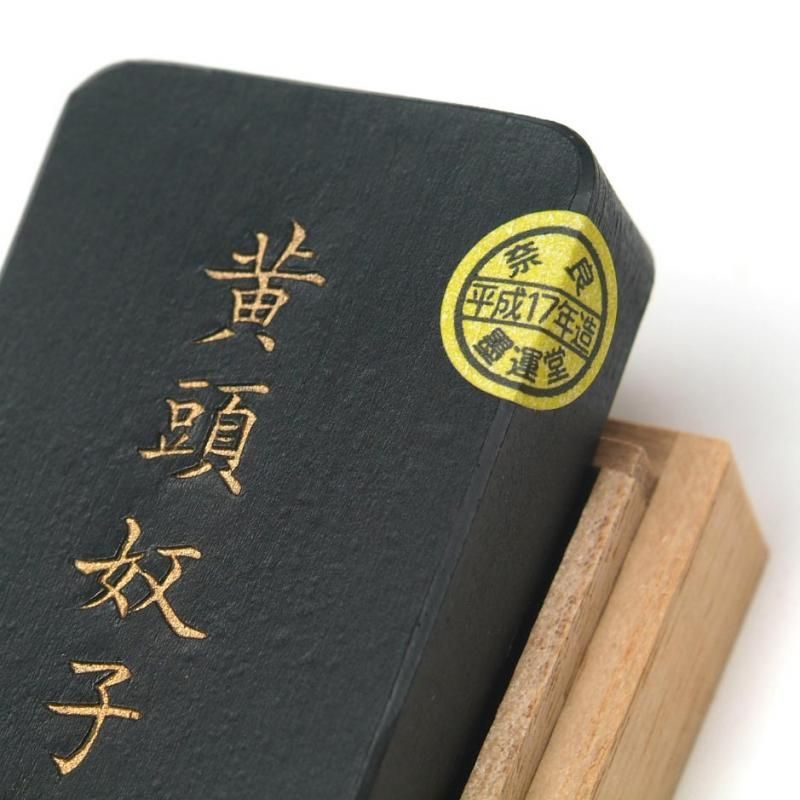 黄頭奴子
奈良
平成17年造
墨運堂